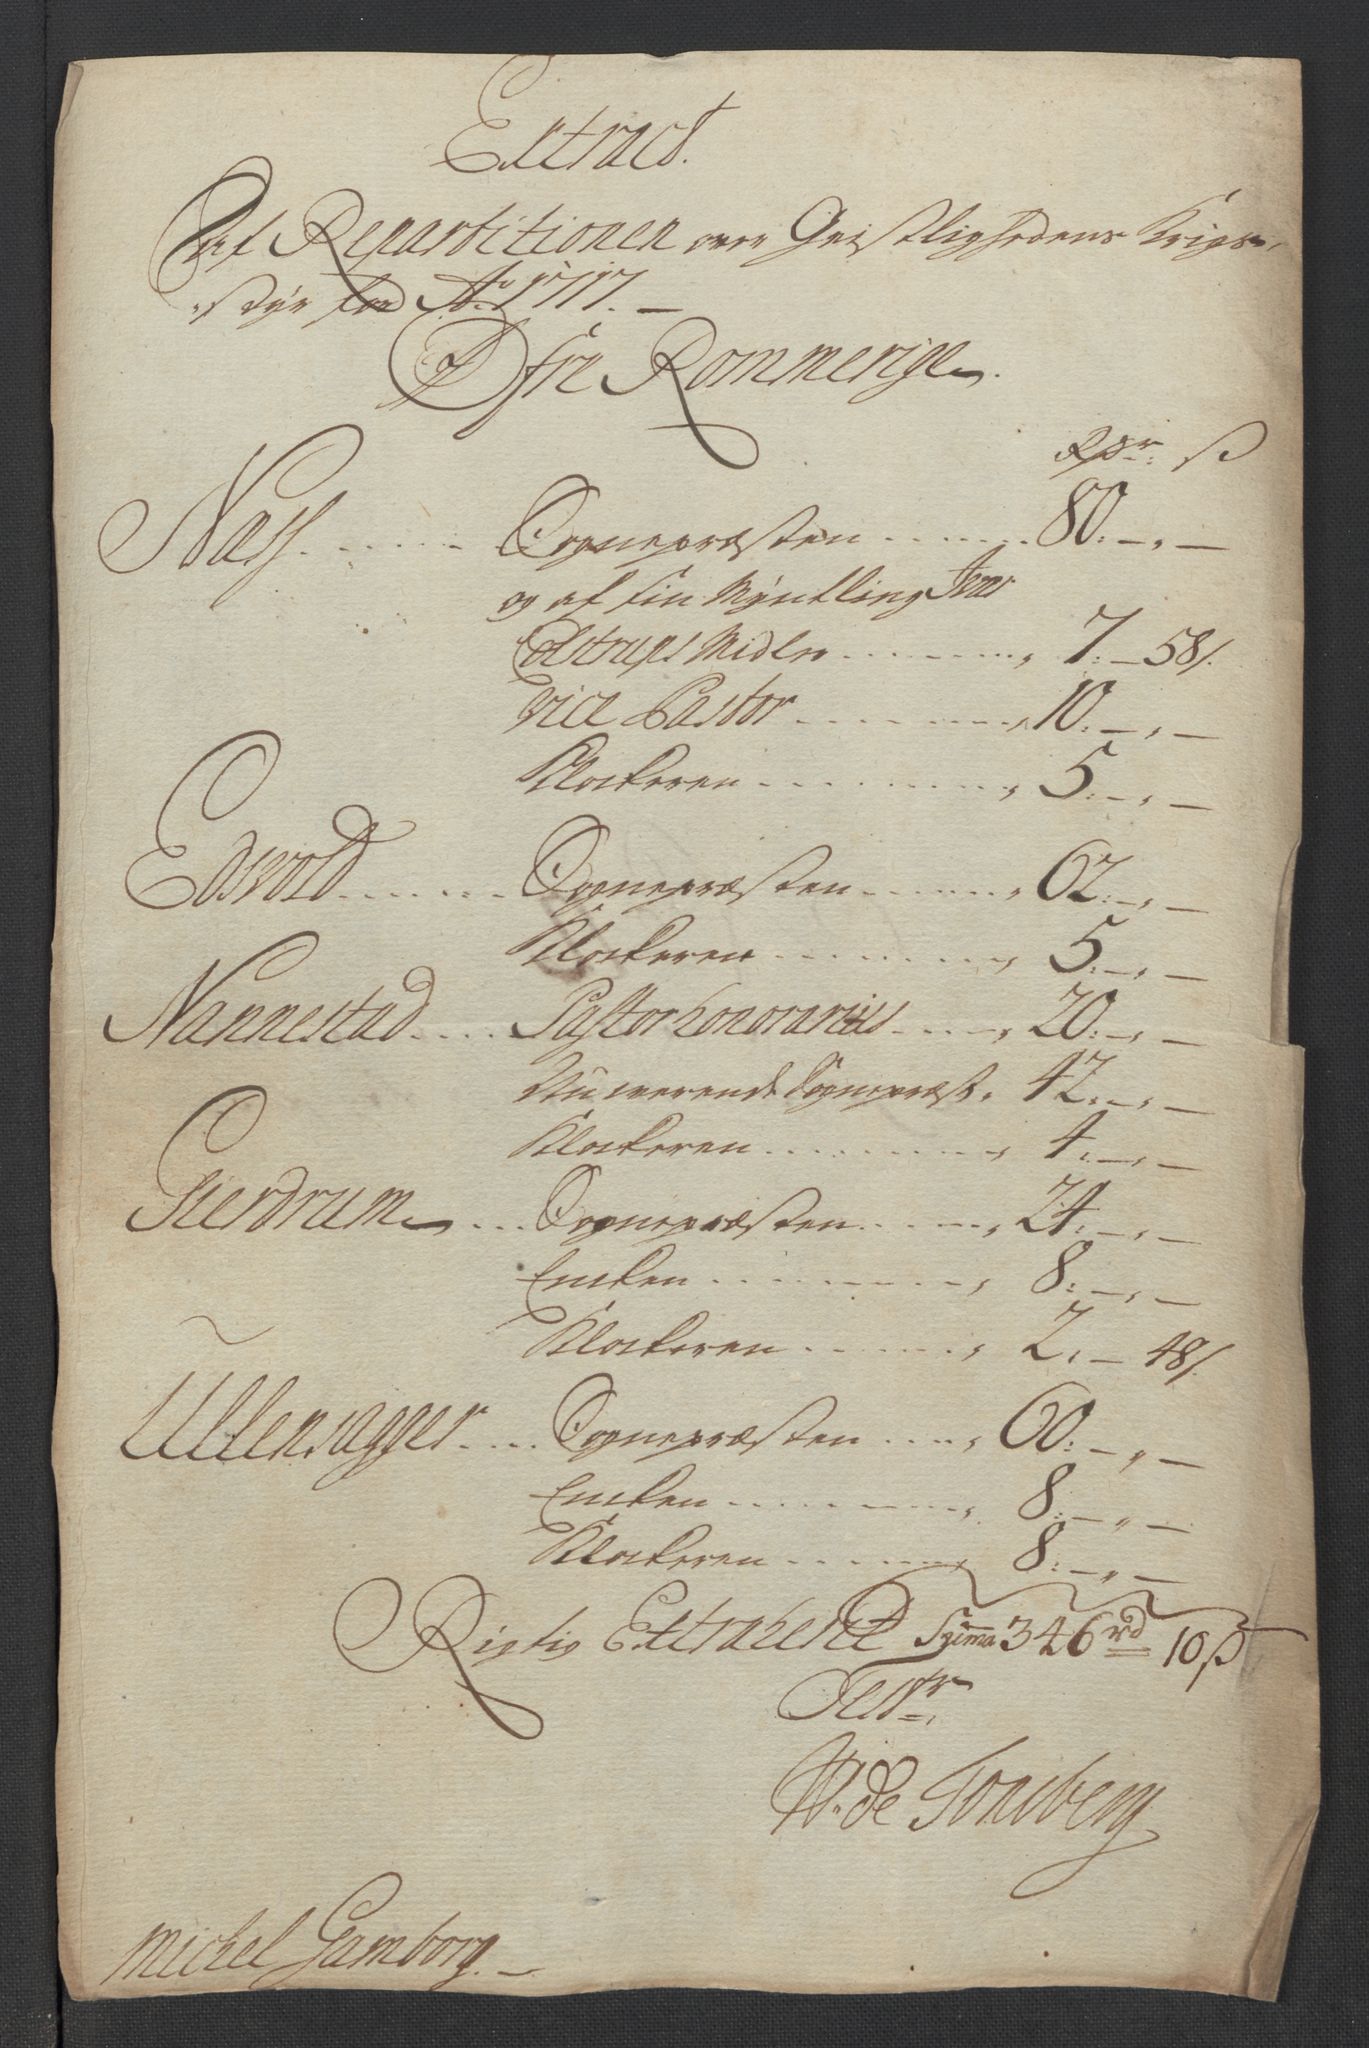 Extract.
Af Repartitionen over Geistlighedens Krigs-
styr for Ao. 1717. —
Øfre Rommerige.
Rdr: ß
Næss ..... Sognepræsten ...... 80. — „ —
og af sin Myndtling Iver
Colstrups Midler ...... 7. — 58/.
Vice Pastor ...... 10. — „ —
Klockeren ...... 5. — „ —
Edsvold ...... Sognepræsten ...... 62. — „ —
Klockeren ...... 5. — „ —
Nannestad .... Pastor honorarius .... 20. — „ —
Nu werende Sognepræst. 42. — „ —
Klockeren ...... 4. — „ —
Gierdrum .... Sognepræsten ..... 24. — „ —
Encken ...... 8. — „ —
Klockeren ...... 2. — 48/.
Ullensagger .... Sognepræsten .... 60. — „ —
Encken ...... 8. — „ —
Klockeren ...... 8. — „ —
Rigtig Extraheret Sum̄a 346 rd 10 ß
Test:
W. de Tonsberg
Michel Gamborg. —